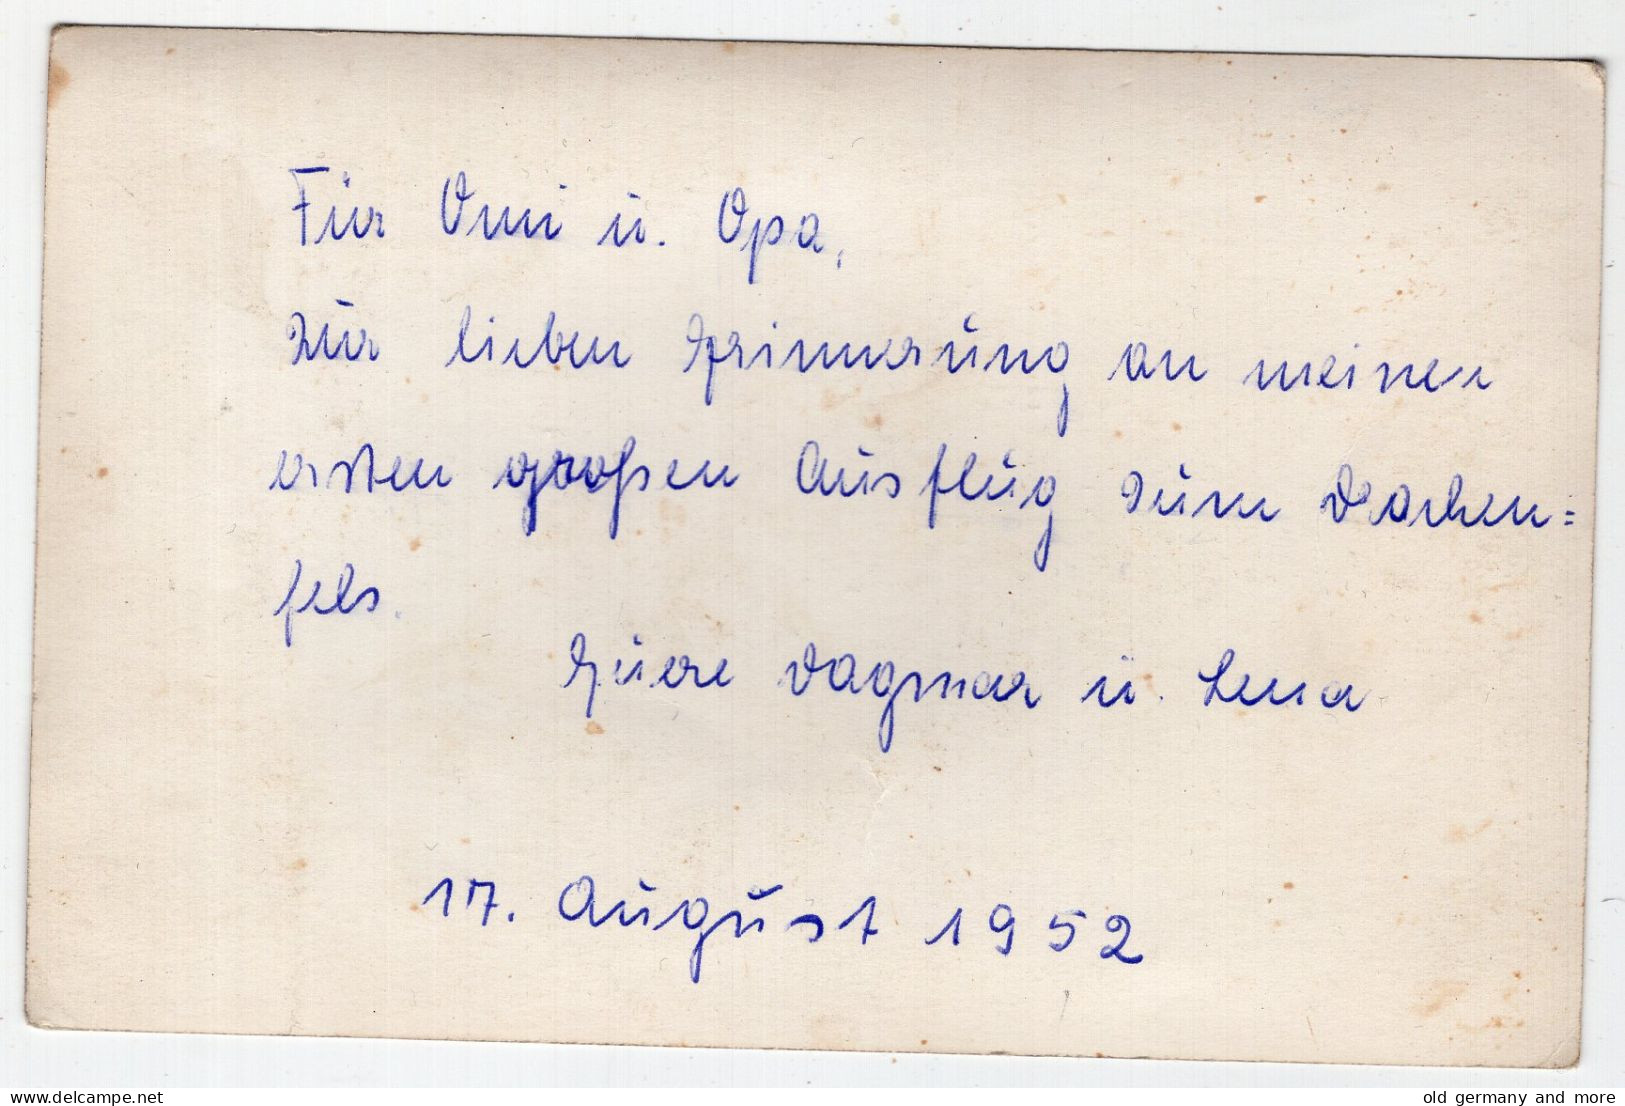 Für Omi u. Opa,
zur lieben Erinnerung an meinen
ersten großen Ausflug zum Drachen=
fels.
Euere Dagmar u. Lena
17. August 1952
delcampe.net
old germany and more